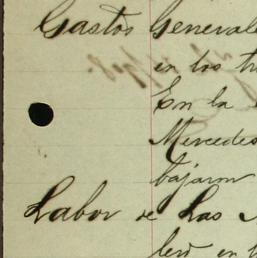 Gastos Generale
en los tr
En la
Mercedes
bajaron
Labor de Las